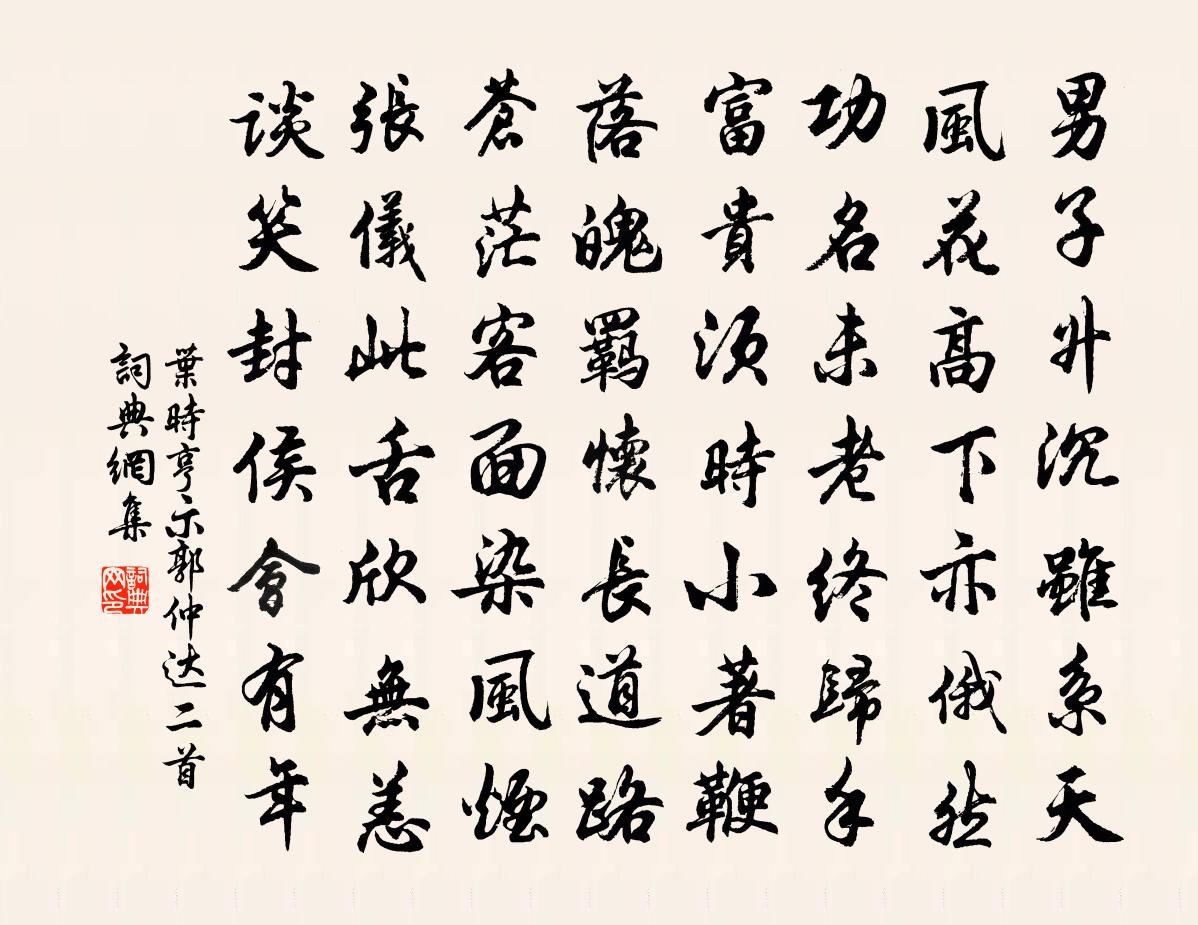 男子升沉雖系天
風花高下亦俄然
功名未老終歸手
富貴須時小著鞭
落魄羈懷長道路
蒼茫客面染風煙
張儀此舌欣無恙
談笑封侯會有年
葉時亨示郭仲达二首
詞典網集
詞典
网印